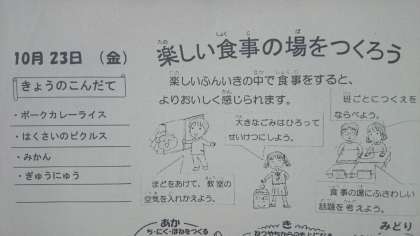 10月 23日 (金)
きょうのこんだて
・ポークカレーライス
・はくさいのピクルス
・みかん
・ぎゅうにゅう
楽しい食事の場をつくろう
楽しいふんいきの中で食事をすると、
よりおいしく感じられます。
大きなごみはひろって
せいけつにしよう。
班ごとにつくえを
ならべよう。
まどをあけて、教室の
空気を入れかえよう。
食事の場にふさわしい
話題を考えよう。
あか
ち・にく・ほねをつくる
き
みどり